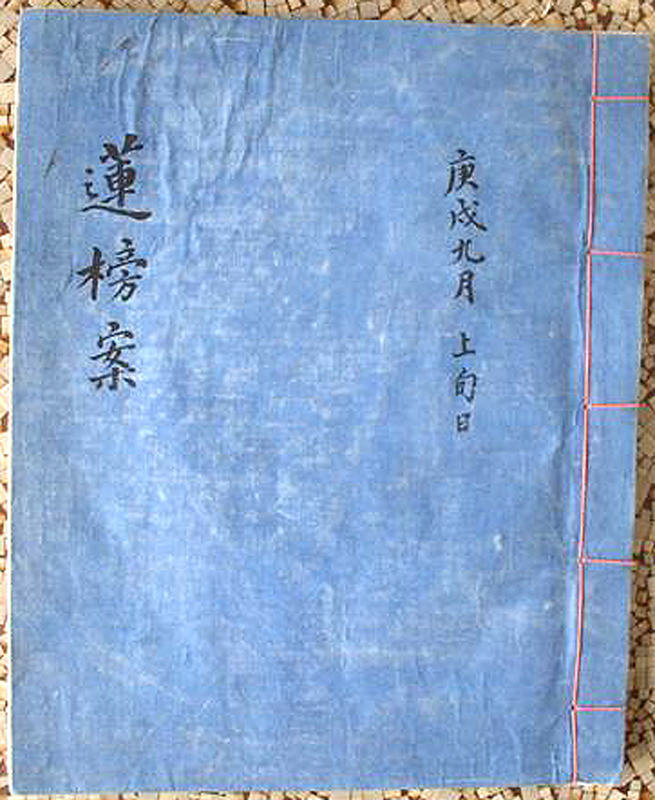 庚戌九月 上旬日
蓮榜案